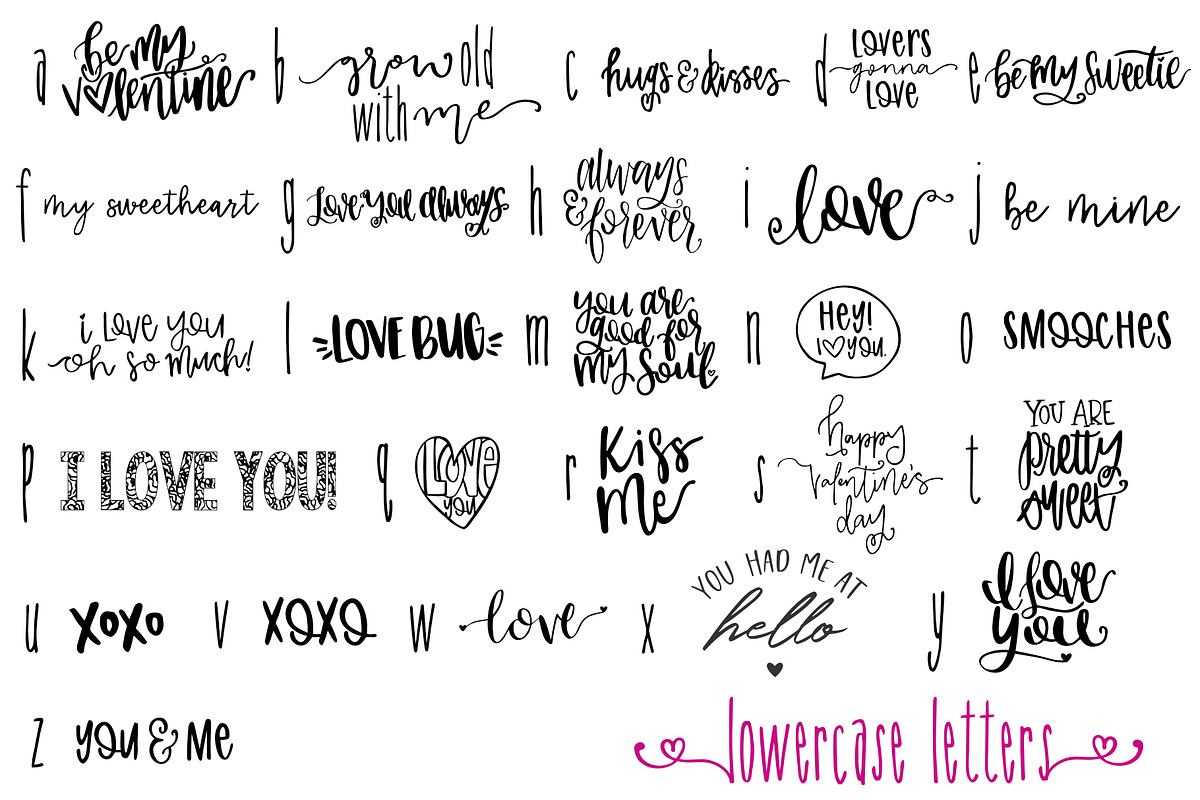 a be my valentine
b grow old with me
c hugs & kisses
d LOVERS gonna LOVE
e be my sweetie
f my sweetheart
g Love you always
h always & forever
i love
j be mine
k i love you oh so much!
l LOVE BUG
m you are good for my soul
n HEY! I ♡ YOU.
o SMOOCHES
p I LOVE YOU!
q LOVE you
r Kiss Me
s happy valentine's day
t YOU ARE pretty sweet
u xoxo
v XOXO
w love
x YOU HAD ME AT hello
y I love you
z YOU & ME
lowercase letters